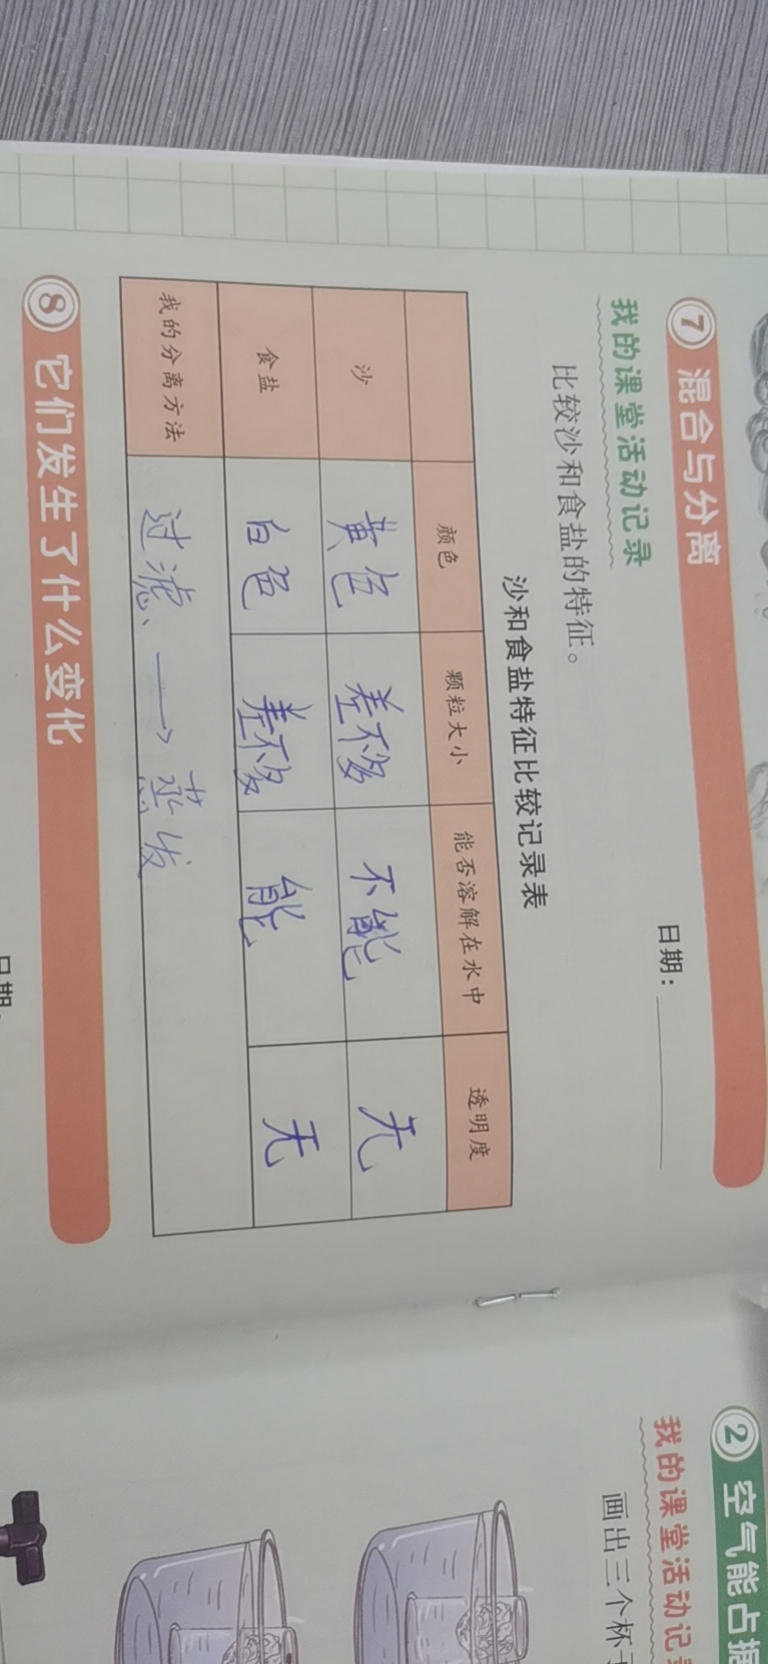 7 混合与分离
日期：
我的课堂活动记录
比较沙和食盐的特征。
沙和食盐特征比较记录表
颜色 颗粒大小 能否溶解在水中 透明度
沙 黄色 差不多 不能 无
食盐 白色 差不多 能 无
我的分离方法 过滤、→蒸发
8 它们发生了什么变化
日期
2 空气能占据
我的课堂活动记
画出三个杯